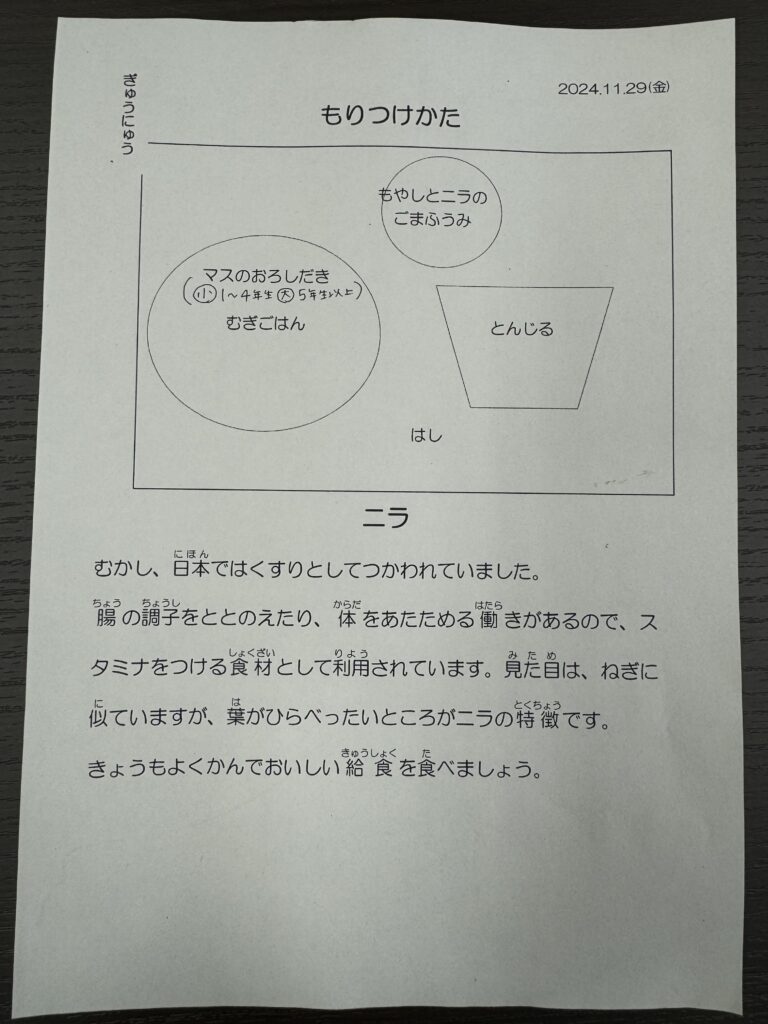 ぎゅうにゅう
2024.11.29(金)
もりつけかた
もやしとニラの
ごまふうみ
マスのおろしだき
(小 1～4年生 大 5年生以上)
むぎごはん
とんじる
はし
ニラ
にほん
むかし、日本ではくすりとしてつかわれていました。
ちょう ちょうし からだ はたら
腸の調子をととのえたり、体をあたためる働きがあるので、ス
しょくざい りよう みため
タミナをつける食材として利用されています。見た目は、ねぎに
に は とくちょう
似ていますが、葉がひらべったいところがニラの特徴です。
きゅうしょく た
きょうもよくかんでおいしい給食を食べましょう。